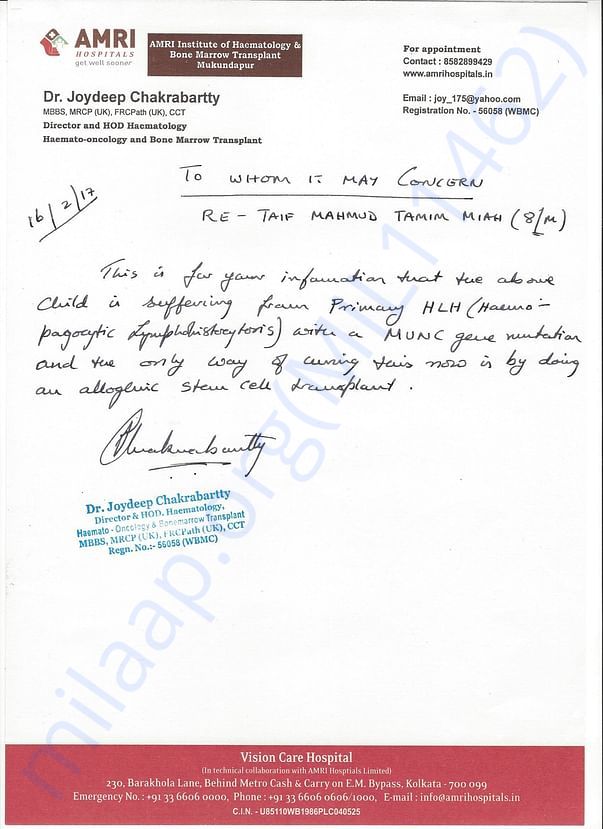 AMRI
HOSPITALS
get well sooner
AMRI Institute of Haematology &
Bone Marrow Transplant
Mukundapur
For appointment
Contact : 8582899429
www.amrihospitals.in
Email : joy_175@yahoo.com
Registration No. - 56058 (WBMC)
Dr. Joydeep Chakrabartty
MBBS, MRCP (UK), FRCPath (UK), CCT
Director and HOD Haematology
Haemato-oncology and Bone Marrow Transplant
16/2/17
TO WHOM IT MAY CONCERN
RE - TAIF MAHMUD TAMIM MIAH (8/M)
This is for your infamation that the above
Child is suffering from Primary HLH (Haemo-
pagocytic Lymphohistocytosis) with a MUNC gene mutation
and the only way of curing this now is by doing
an allogenic stem cell transplant.
Chakrabartty
Dr. Joydeep Chakrabartty
Director & HOD, Haematology,
Haemato - Oncology & Bonemarrow Transplant
MBBS, MRCP (UK), FRCPath (UK), CCT
Regn. No.:- 56058 (WBMC)
milaap.org(MIL11462)
Vision Care Hospital
(In technical collaboration with AMRI Hosptials Limited)
230, Barakhola Lane, Behind Metro Cash & Carry on E.M. Bypass, Kolkata - 700 099
Emergency No. : +91 33 6606 0000, Phone : +91 33 6606 0606/1000, E-mail : info@amrihospitals.in
C.I.N. - U85110WB1986PLC040525